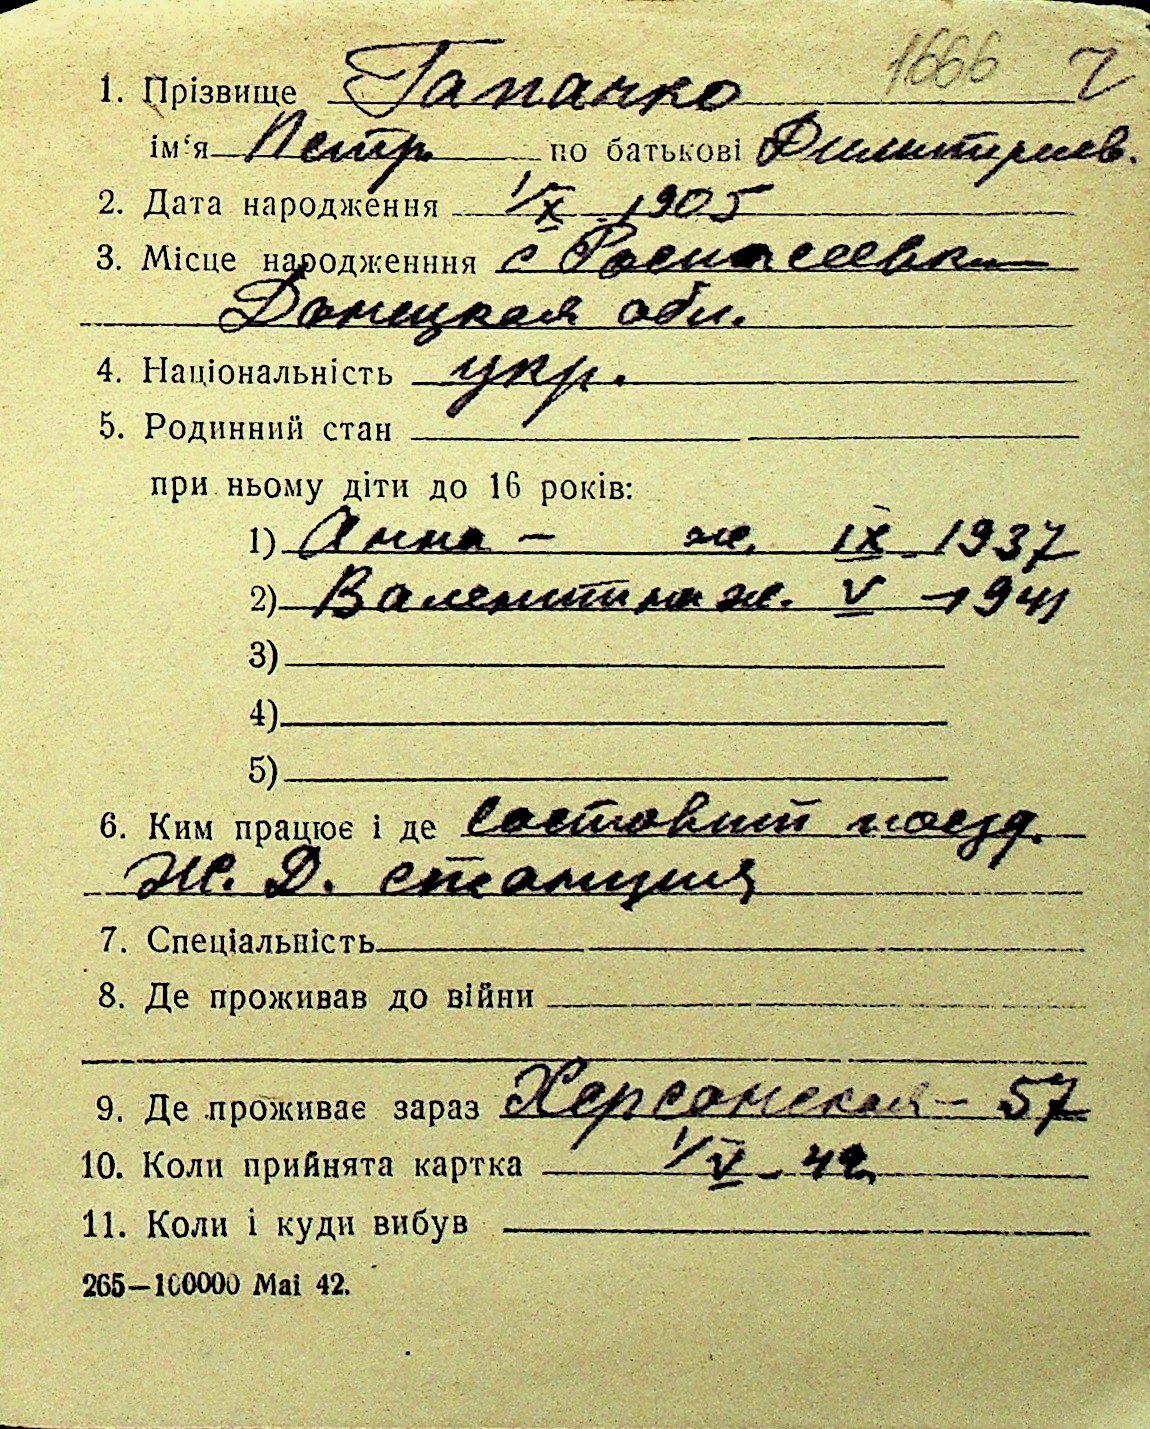 1666 Г
1. Прізвище Гапачко
ім‘я Петр. по батькові Дмитриев.
2. Дата народження 1/X 1905
3. Місце народженння с
Донецкая обл.
4. Національність укр.
5. Родинний стан
при ньому діти до 16 років:
1) Анна – ж. IX 1937
2) Валентина ж. V – 1941
3)
4)
5)
6. Ким працює і де Составит поезд.
Ж. Д. станция
7. Спеціальність
8. Де проживав до війни
9. Де проживає зараз Херсонская – 57
10. Коли прийнята картка 1/V – 42
11. Коли і куди вибув
265—100000 Mai 42.